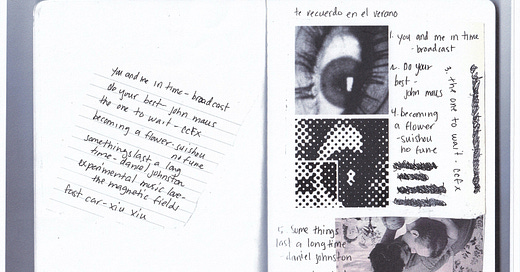 you and me in time - broadcast
do your best - john maus
the one to wait - ccfx
becoming a flower - suishou
no fune
somethings last a long
time - daniel johnston
experimental music love -
the magnetic fields
fast car - xiu xiu
te recuerdo en el verano
1. you and me in time
- broadcast
2. Do your
best -
john maus
3. the one to wait - ccfx
4. becoming
a flower
- suishou
no fune
5. some things
last a long time
- daniel johnston